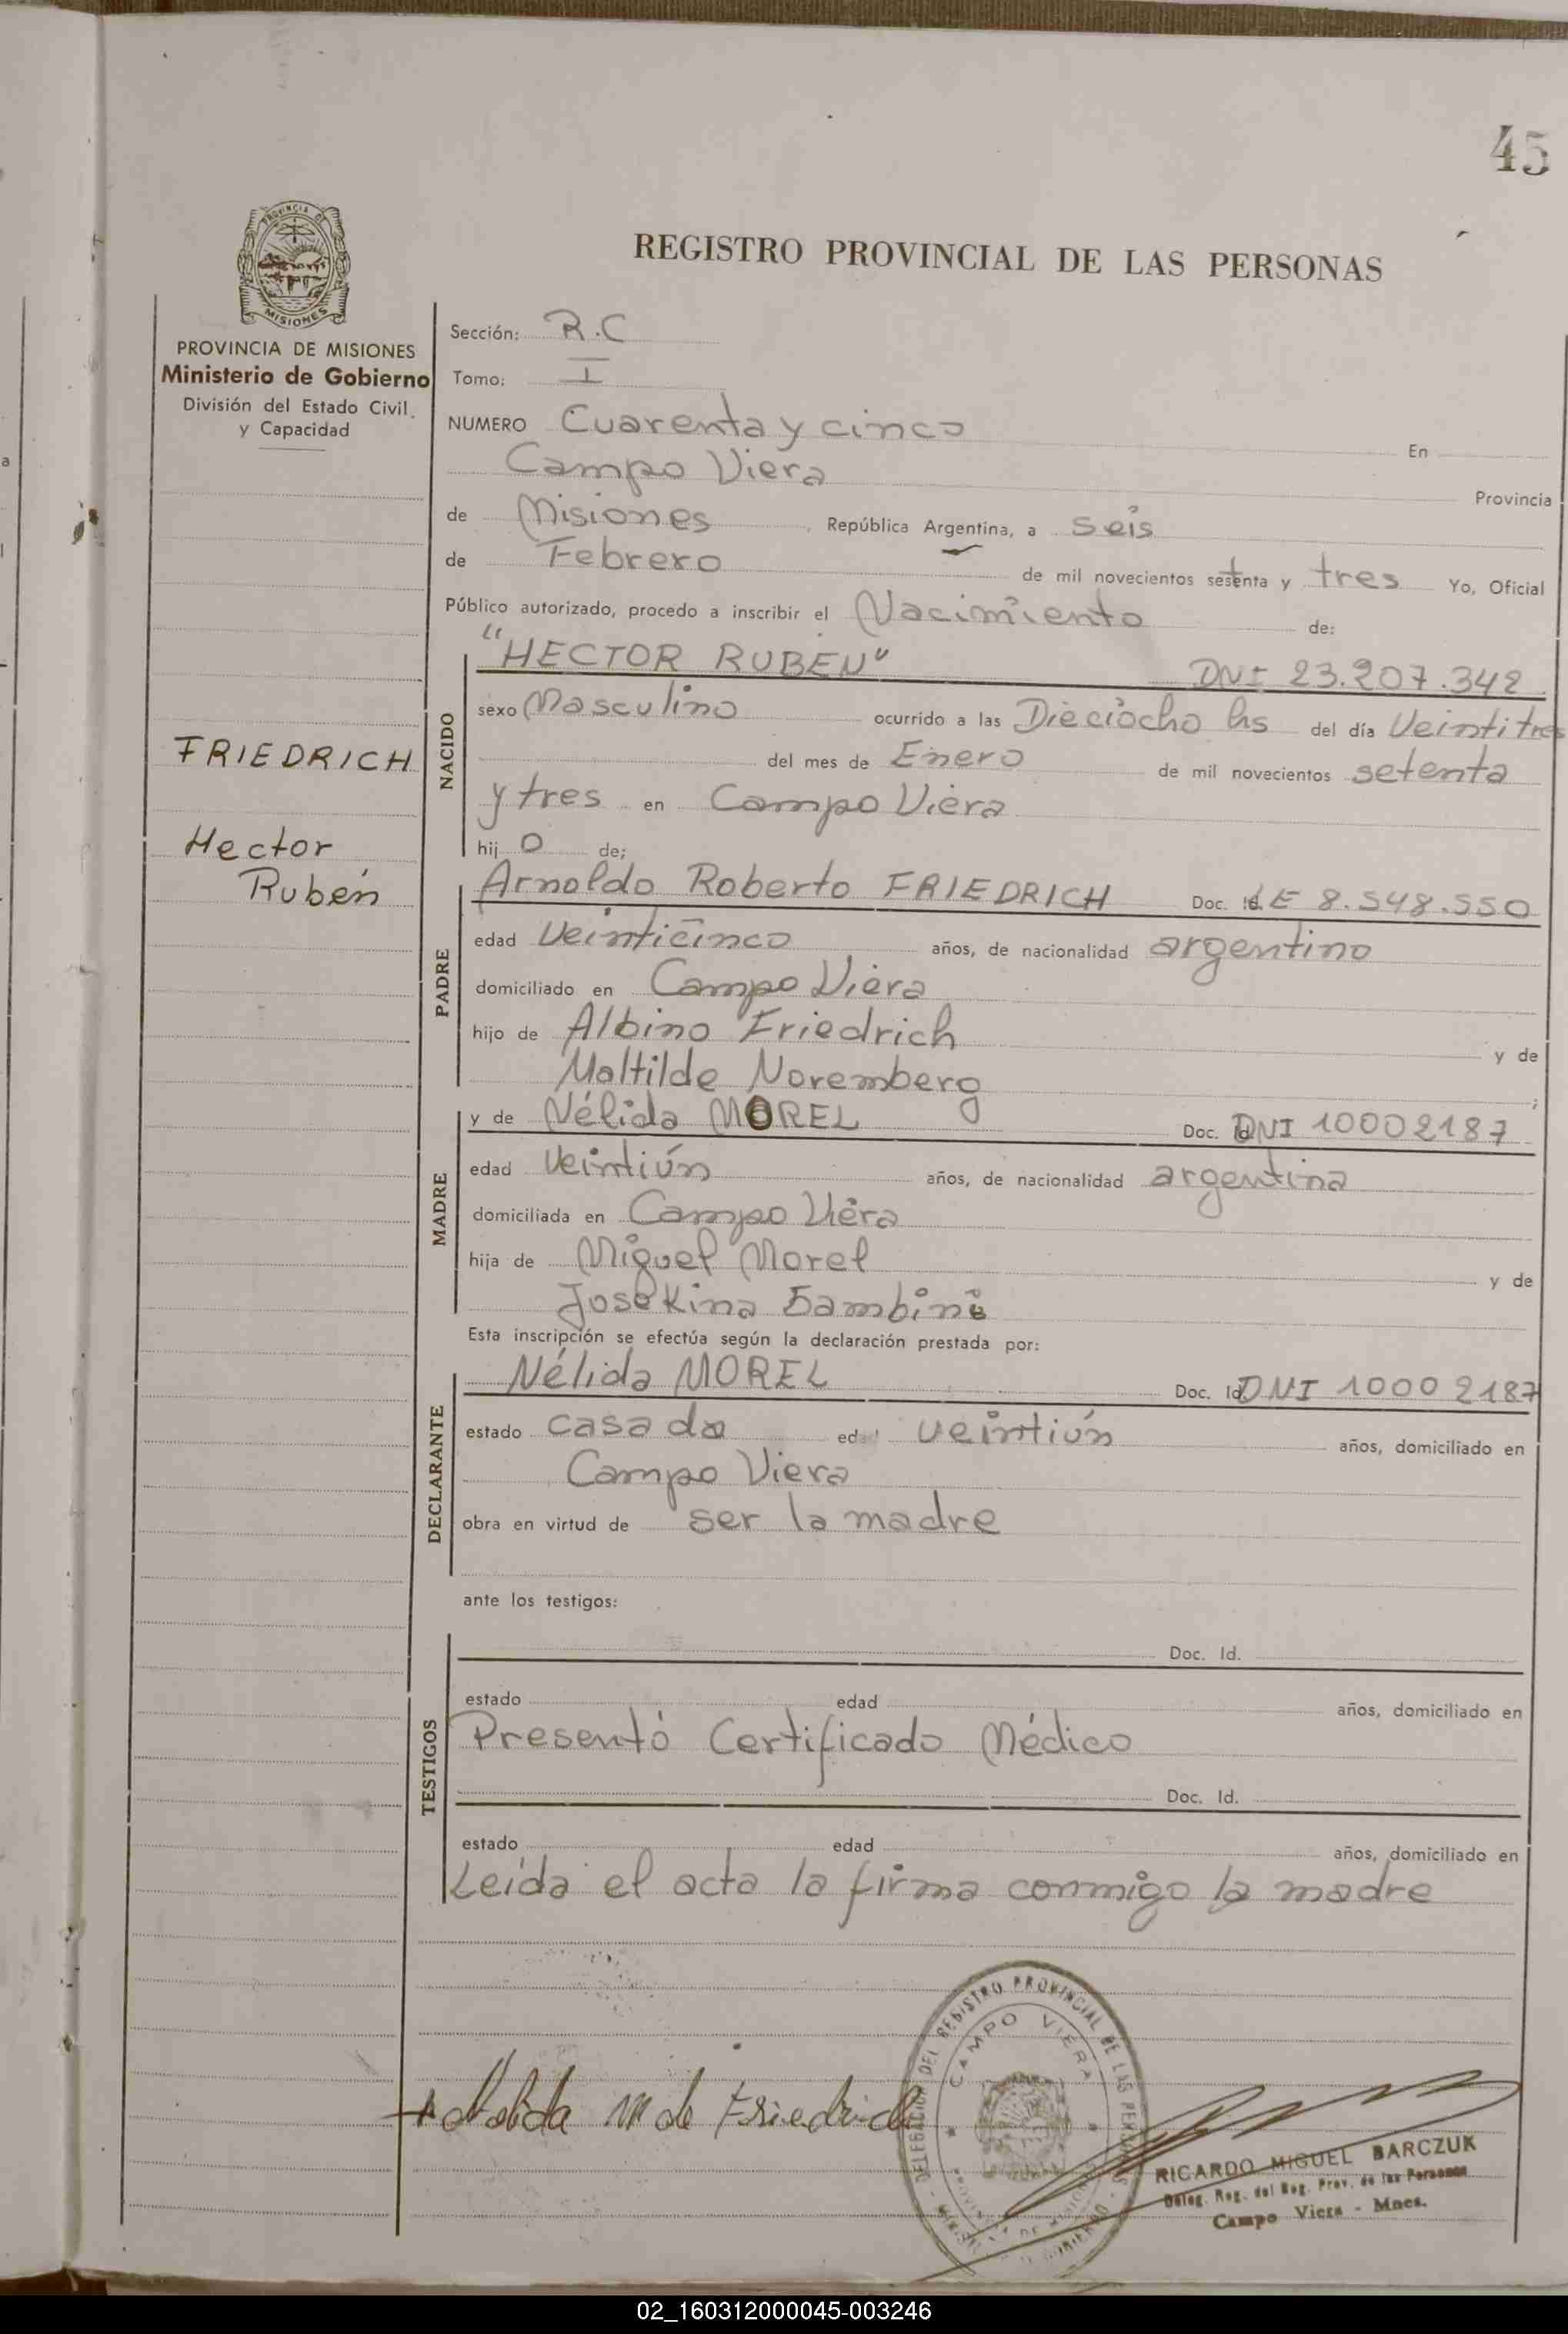 45
PROVINCIA DE
MISIONES
REGISTRO PROVINCIAL DE LAS PERSONAS
PROVINCIA DE MISIONES
Ministerio de Gobierno
División del Estado Civil.
y Capacidad
Sección: R.C
Tomo: I
NUMERO Cuarenta y cinco En
Campo Viera Provincia
de Misiones, República Argentina, a seis
de Febrero de mil novecientos setenta y tres Yo, Oficial
Público autorizado, procedo a inscribir el Nacimiento de:
NACIDO
"HECTOR RUBEN" DNI 23.207.342
sexo Masculino ocurrido a las Dieciocho hs del día Veintitres
del mes de Enero de mil novecientos setenta
y tres en Campo Viera
hij o de;
FRIEDRICH
Hector
Rubén
PADRE
Arnoldo Roberto FRIEDRICH Doc. Id. LE 8.548.550
edad veinticinco años, de nacionalidad argentino
domiciliado en Campo Viera
hijo de Albino Friedrich y de
Maltilde Noremberg ;
MADRE
y de Nélida MOREL Doc. Id. DNI 10002187
edad veintiún años, de nacionalidad argentina
domiciliada en Campo Viera
hija de Miguel Morel y de
Josekina
Esta inscripción se efectúa según la declaración prestada por:
DECLARANTE
Nélida MOREL Doc. Id. DNI 10002187
estado casada edad veintiún años, domiciliado en
Campo Viera
obra en virtud de ser la madre
ante los testigos:
TESTIGOS
Doc. Id.
estado edad años, domiciliado en
Presentó Certificado Médico
Doc. Id.
estado edad años, domiciliado en
Leída el acta la firma conmigo la madre
Nelida M de Friedrich
DELEGACION DEL REGISTRO PROVINCIAL DE LAS PERSONAS
CAMPO VIERA
PROVINCIA DE MISIONES
RICARDO MIGUEL BARCZUK
Deleg. Reg. del Reg. Prov. de las Personas
Campo Viera - Mnes.
02_160312000045-003246